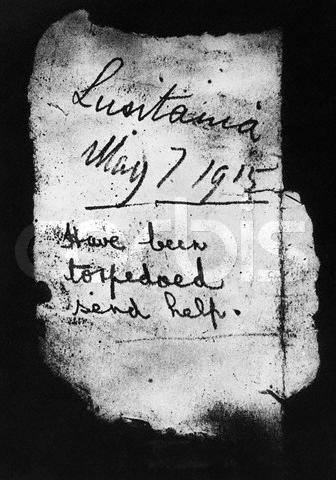 Lusitania
May 7 1915
Have been
torpedoed
send help.
corbis